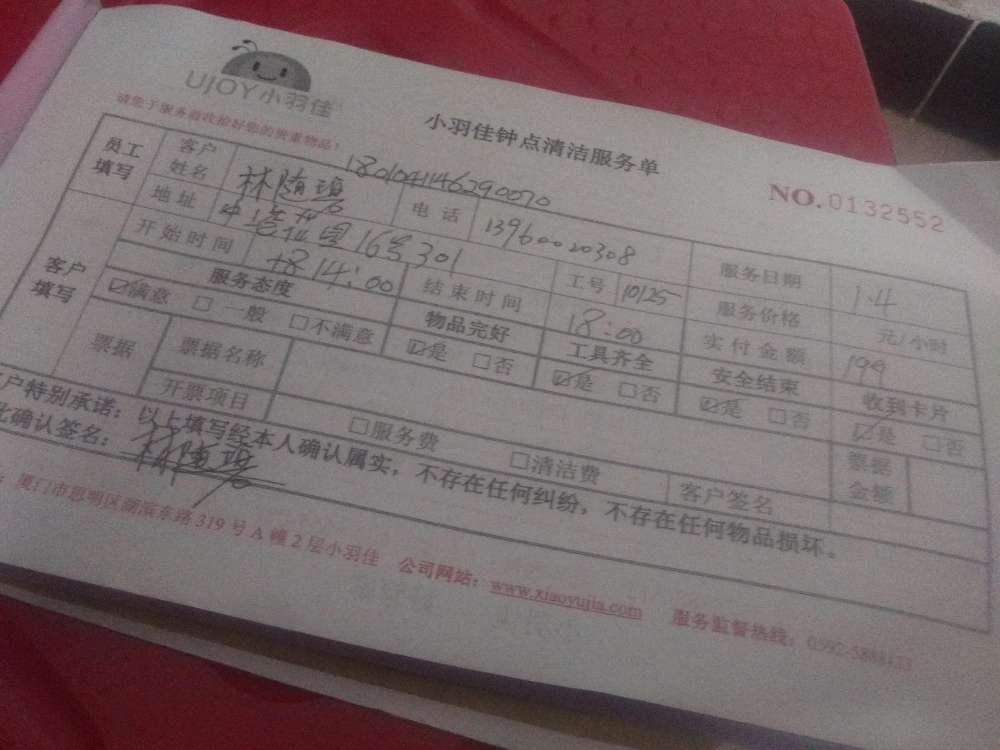 UJOY小羽佳
请您于服务前收捡好您的贵重物品！
小羽佳钟点清洁服务单
NO.0132552
180104146290070
员工填写 客户姓名 林 电话 13960020308 服务日期 1.4
地址 16号301 工号 10125 服务价格 元/小时
开始时间 14:00 结束时间 18:00 实付金额 199
客户填写 服务态度 物品完好 工具齐全 安全结束 收到卡片
☑满意 □一般 □不满意 ☑是 □否 ☑是 □否 ☑是 □否 ☑是 □否
票据 票据名称 票据金额
开票项目 □服务费 □清洁费 客户签名
户特别承诺：以上填写经本人确认属实，不存在任何纠纷，不存在任何物品损坏。
此确认签名： 林
厦门市思明区湖滨东路319号A幢2层小羽佳 公司网站：www.xiaoyujia.com 服务监督热线：0592-